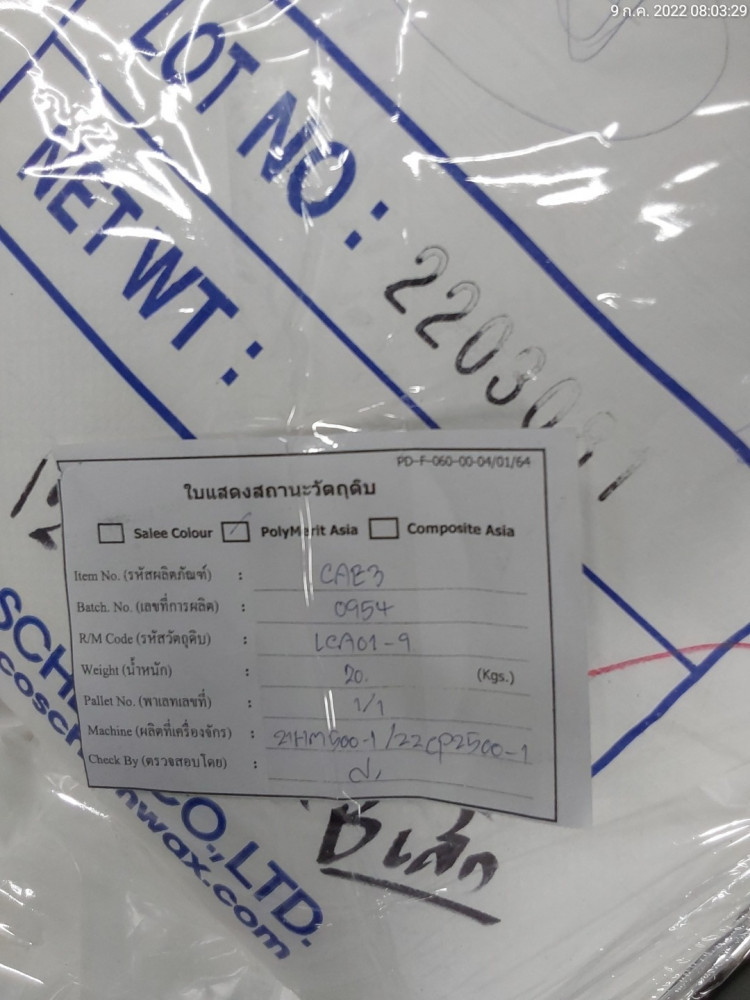 9 ก.ค. 2022 08:03:29
LOT NO:
NET WT:
PD-F-060-00-04/01/64
ใบแสดงสถานะวัตถุดิบ
Salee Colour PolyMerit Asia Composite Asia
Item No. (รหัสผลิตภัณฑ์) : CAE3
Batch. No. (เลขที่การผลิต) : 0954
R/M Code (รหัสวัตถุดิบ) : LCA01-9
Weight (น้ำหนัก) : 20. (Kgs.)
Pallet No. (พาเลทเลขที่) : 1/1
Machine (ผลิตที่เครื่องจักร) : 21HM500-1/22CP2500-1
Check By (ตรวจสอบโดย) :
CO.,LTD.